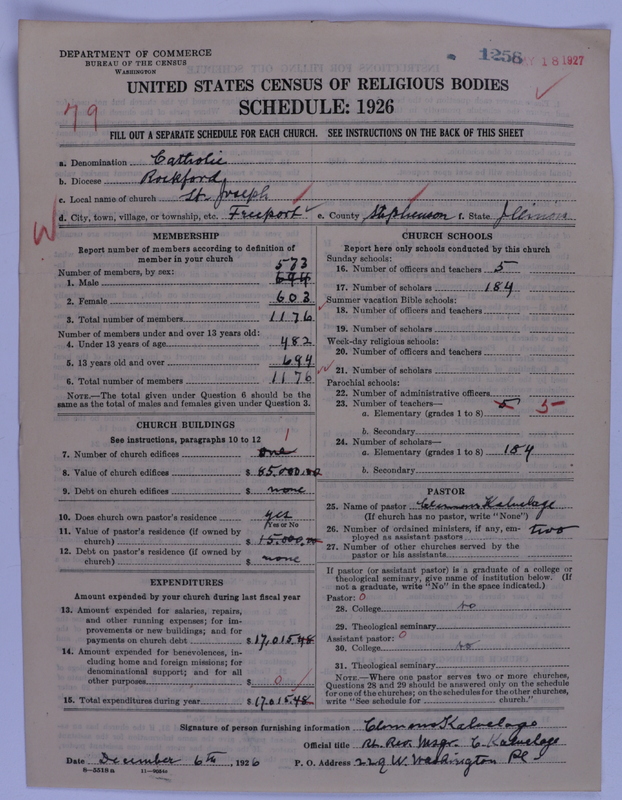 DEPARTMENT OF COMMERCE
BUREAU OF THE CENSUS
WASHINGTON
1258
MAY 18 1927
UNITED STATES CENSUS OF RELIGIOUS BODIES
SCHEDULE: 1926
79
FILL OUT A SEPARATE SCHEDULE FOR EACH CHURCH. SEE INSTRUCTIONS ON THE BACK OF THIS SHEET
a. Denomination Catholic
b. Diocese Rockford
c. Local name of church St. Joseph
d. City, town, village, or township, etc. Freeport e. County Stephenson f. State Illinois
W
MEMBERSHIP
Report number of members according to definition of
member in your church
573
Number of members, by sex:
1. Male 694
2. Female 603
3. Total number of members 1176
Number of members under and over 13 years old:
4. Under 13 years of age 482
5. 13 years old and over 694
6. Total number of members 1176
NOTE.—The total given under Question 6 should be the
same as the total of males and females given under Question 3.
CHURCH BUILDINGS
See instructions, paragraphs 10 to 12
1
7. Number of church edifices one
8. Value of church edifices $ 85,000.00
9. Debt on church edifices $ none
10. Does church own pastor's residence yes
Yes or No
11. Value of pastor's residence (if owned by
church) $ 15,000.00
12. Debt on pastor's residence (if owned by
church) $ none
EXPENDITURES
Amount expended by your church during last fiscal year
13. Amount expended for salaries, repairs,
and other running expenses; for im-
provements or new buildings; and for
payments on church debt $ 17,015.48
14. Amount expended for benevolences, in-
cluding home and foreign missions; for
denominational support; and for all
other purposes $ 0
15. Total expenditures during year $ 17,015.48
CHURCH SCHOOLS
Report here only schools conducted by this church
Sunday schools:
16. Number of officers and teachers 5
17. Number of scholars 184
Summer vacation Bible schools:
18. Number of officers and teachers
19. Number of scholars
Week-day religious schools:
20. Number of officers and teachers
21. Number of scholars
Parochial schools:
22. Number of administrative officers
23. Number of teachers—
a. Elementary (grades 1 to 8) 5 5
b. Secondary
24. Number of scholars—
a. Elementary (grades 1 to 8) 184
b. Secondary
PASTOR
25. Name of pastor Clemens Kalvelage
(If church has no pastor, write "None")
26. Number of ordained ministers, if any, em-
ployed as assistant pastors two
27. Number of other churches served by the
pastor or his assistants
If pastor (or assistant pastor) is a graduate of a college or
theological seminary, give name of institution below. (If
not a graduate, write "No" in the space indicated.)
Pastor: 0
28. College no
29. Theological seminary
Assistant pastor: 0
30. College no
31. Theological seminary
NOTE.—Where one pastor serves two or more churches,
Questions 28 and 29 should be answered only on the schedule
for one of the churches; on the schedules for the other churches,
write "See schedule for church."
Signature of person furnishing information Clemens Kalvelage
Official title Rt. Rev. Msgr. C. Kalvelage
Date December 6th, 1926 P. O. Address 229 W. Washington Pl
8-5518a 11-9034a